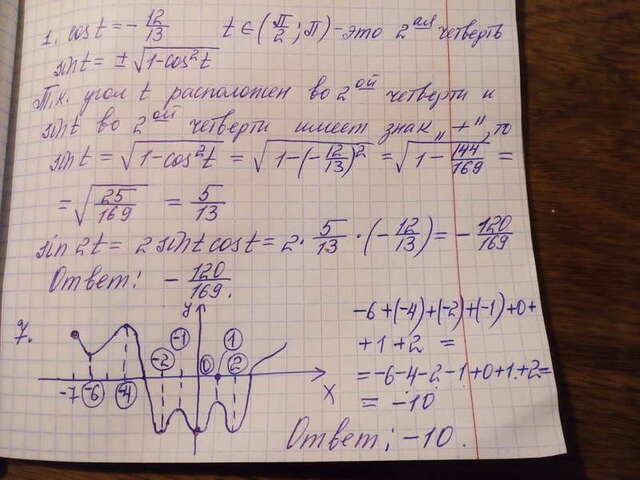 1. cos t = - 12/13   t ∈ (π/2; π) - это 2ая четверть
sin t = ± √(1-cos² t)
Т.к. угол t расположен во 2ой четверти и
sin t во 2ой четверти имеет знак „+", то
sin t = √(1-cos² t) = √(1-(-12/13)²) = √(1 - 144/169) =
= √(25/169) = 5/13
sin 2t = 2 sin t cos t = 2 · 5/13 · (-12/13) = - 120/169
Ответ: - 120/169.
7.
y
-1 1
-2 0 2
-7 -6 -4
x
-6+(-4)+(-2)+(-1)+0+
+1+2 =
=-6-4-2-1+0+1+2=
= -10
Ответ: -10.